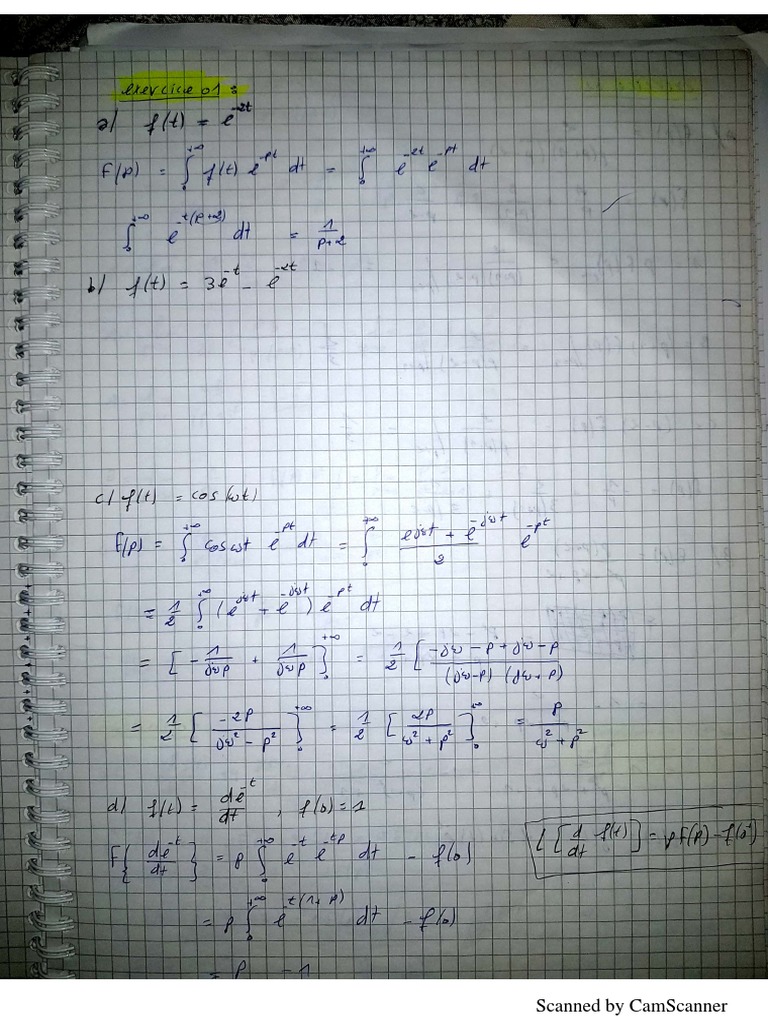 exercice 01 :
a) f(t) = e^{-2t}
F(p) = ∫_0^{+∞} f(t) e^{-pt} dt = ∫_0^{+∞} e^{-2t} e^{-pt} dt
∫_0^{+∞} e^{-t(p+2)} dt = 1/(p+2)
b) f(t) = 3e^{-t} - e^{-2t}
c) f(t) = cos(ωt)
F(p) = ∫_0^{+∞} cosωt e^{-pt} dt = ∫_0^{+∞} (e^{jωt} + e^{-jωt})/2 e^{-pt}
= 1/2 ∫_0^{+∞} (e^{jωt} + e^{-jωt}) e^{-pt} dt
= [-1/(jωp) + 1/(jωp)]_0^{+∞} = 1/2 [(-jω - p + jω - p)/((jω-p) (jω+p))
= 1/2 [-2p/(jω² - p²)]_0^{+∞} = 1/2 [2p/(ω² + p²)]_0^{+∞} = p/(ω² + p²)
d) f(t) = de^{-t}/dt , f(0) = 1
F{de^{-t}/dt} = p ∫_0^{+∞} e^{-t} e^{-tp} dt - f(0)
L[d/dt f(t)] = pF(p) - f(0^+)
= p ∫_0^{+∞} e^{-t(1+p)} dt - f(0)
= p - 1
Scanned by CamScanner